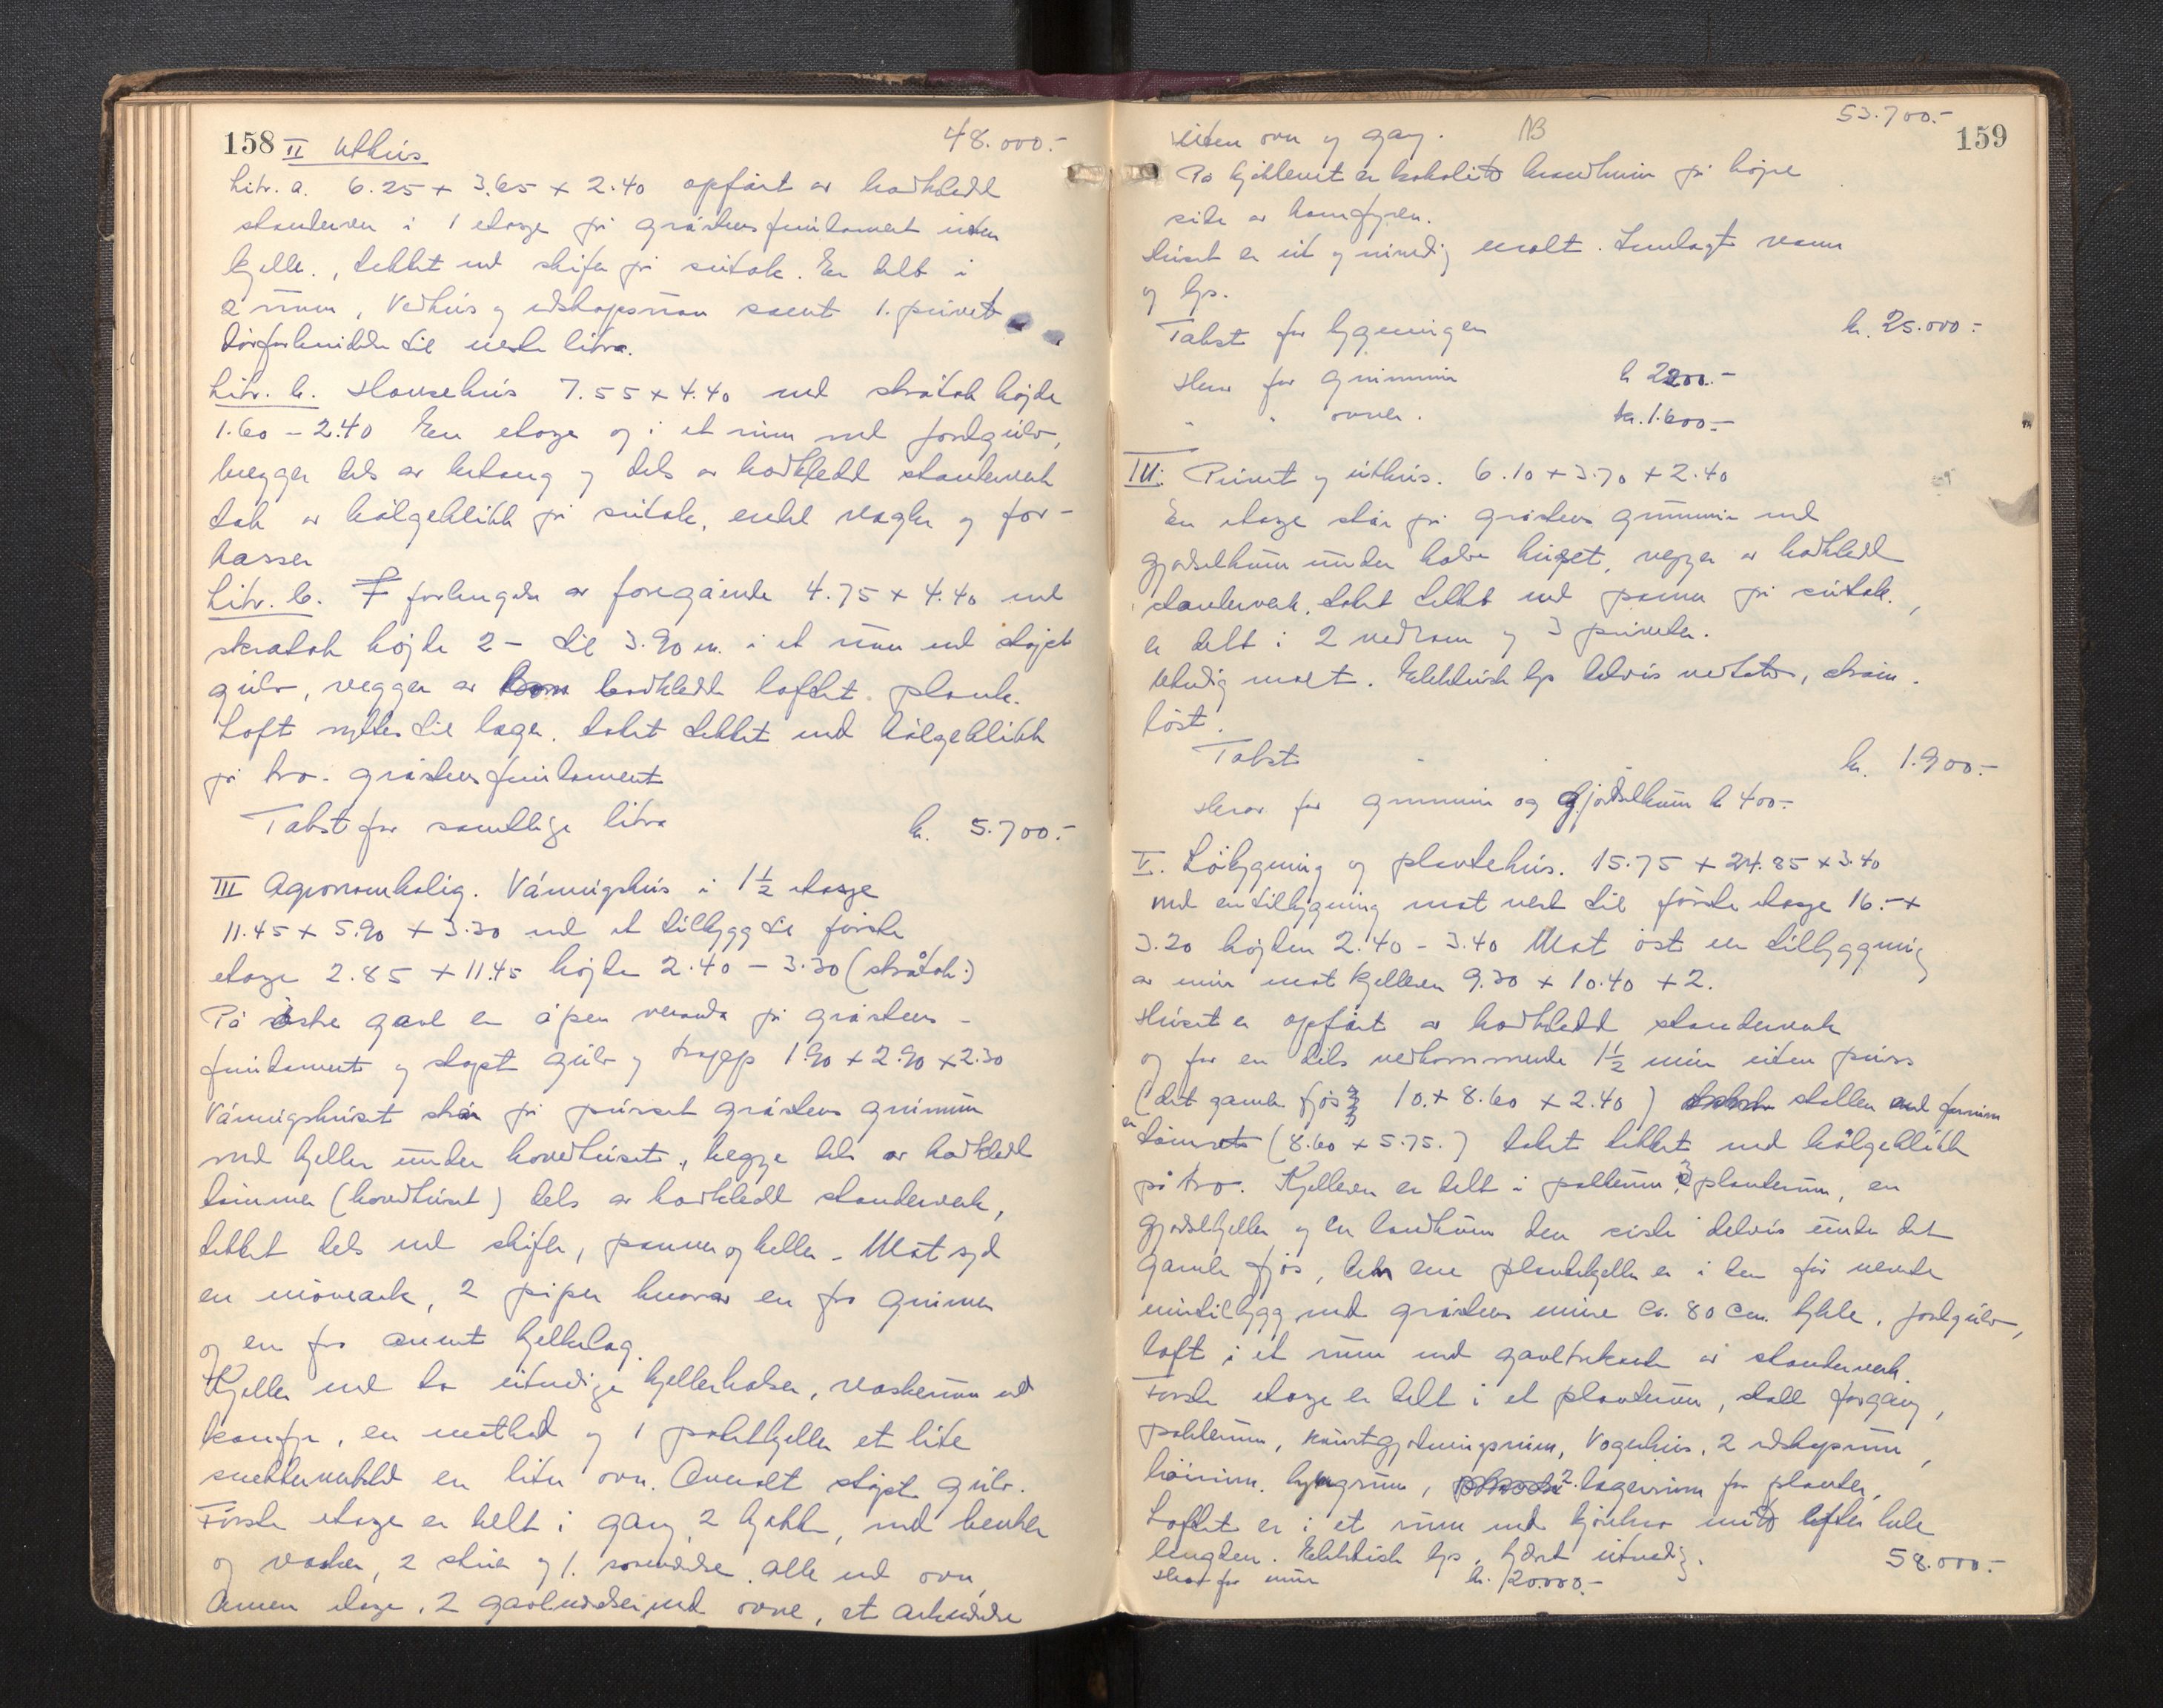 158 II Uthus 48.000.-
Litr. a. 6.25 + 3.65 + 2.40 opført av bordkledd
standerverk i 1 etasje på gråstensfundament uten
kjeller, tekket med skifer på sutak. Er delt i
2 rum, Vedhus og redskapsrum samt 1. privet
Litr. b. Hønsehus 7.55 x 4.40 med skråtak højde
1.60 - 2.40 En etasje og i et rum med jordgulv,
vegger dels av betong og dels av bordkledd standerverk
tak av bølgeblikk på sutak, enkel vagler og for-
kasser
Litr. c. F forlengelse av foregående 4.75 x 4.40 med
skratak højde 2 - til 3.90 m. i et rum med støpt
gulv, vegger av bordkledd loftet plank.
Loft nyttes til lager. taket tekket med bølgeblikk
på tro. gråstensfundament
Takst for samtlige litra kr. 5.700.-
III Agronombolig. Våningshus i 1 1/2 etasje
11.45 + 5.90 + 3.30 med et tilbygg til første
etasje 2.85 + 11.45 højde 2.40 - 3.30 (skråtak)
På østre gavl en åpen veranda på gråstens-
fundament og støpt gulv og trapp 1.90 + 2.90 x 2.30
Våningshuset står på pusset gråstens grunmur
med kjeller under hovedhuset, begge dels av bordkledd
tømmer (hovedhuset) dels av bordkledd standerverk,
tekket dels med skifer, panner og heller - Mot syd
en moneark, 2 piper hvorav en fra grunnen
og en fra annet bjelkelag.
Kjeller med to utvendige kjellerhalser, vaskerum med
komfyr, en matbod og 1 potetkjeller et lite
snekkerverksted en liten ovn. Overalt støpt gulv.
Første etasje er delt i gang, 2 kjøkken, med benker
og vasker, 2 stuer og 1. soveværelse alle med ovn,
Annen etasje, 2 gavlværelser med ovne, et arkværelse
53.700.- 159
uten ovn og gang. NB
På kjøkkenet er kokolitt brandmur på højre
side av komfyren.
Huset er ut og innvendig malt. Innlagt vann
og lys.
Takst for bygningen kr. 25.000.-
Herav for grunmur kr 2200.-
" " ovner. kr. 1.600.-
IV. Privet og uthus. 6.10 + 3.70 + 2.40
En etasje står på gråstens grunmur med
gjødselkum under halve huset, vegger av bordkledd
standerverk, taket tekket med panner på sutak,
er delt i 2 vedrom og 3 priveter.
Utvendig malt. Elektrisk lys
løst.
Takst kr. 1.900.-
Herav for grunmur og gjødselkum kr 400.-
V. Løbygning og plantehus. 15.75 + 24.85 x 3.40
med en tilbygning mot vest til første etasje 16.- +
3.20 højden 2.40 - 3.40 Mot øst en tilbyggning
av mur mot kjelleren 9.30 + 10.40 + 2.
Huset er opført av bordkledd standerverk
og for en dels vedkommende 1 1/2 mur uten puss
(det gamle fjøs 10. + 8.60 x 2.40) stallen
er tømret (8.60 + 5.75.) taket tekket med bølgeblikk
på tro. Kjelleren er delt i pakkrum, 3 planterum, en
gjødselkjeller og en landkum den siste delvis under det
gamle fjøs, den ene plantekjeller er i den før nevnte
murtilbygg med gråstens mure ca. 80 cm. tykke, jordgulv,
loft i et rum med gavltrekant av standerverk.
Første etasje er delt i et planterum, stall forgang,
pakkerum, kunstgjødningsrum, Vognhus, 2 redskapsrum,
høirum. hyngrum, 2 lagerrum for planter,
Loftet er i et rum med kjørebro midt efter hele
lengden. Elektrisk lys, tjæret utvendig. 58.000.-
Herav for mur kr. 20.000.-